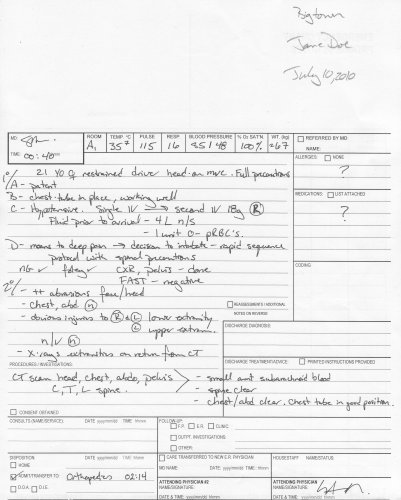 Bigtown
Jane Doe
July 10, 2010
MD:
TIME: 00:40
ROOM A1
TEMP. °C 35²
PULSE 115
RESP. 16
BLOOD PRESSURE 85/48
% O₂ SAT'N. 100%
WT. (kg) ~67
REFERRED BY MD
NAME:
ALLERGIES: NONE
?
MEDICATIONS: LIST ATTACHED
?
CODING:
1°/ 21 YO ♀ restrained driver head-on mvc. Full precautions
A - patent
B - chest tube in place, working well
C - Hypotensive. Single IV → second IV 18g (R)
Fluid prior to arrival - 4 L n/s
- 1 unit O- pRBC's.
D - moans to deep pain → decision to intubate - rapid sequence
protocol with spinal precautions
NG ✓ foley ✓ CXR, pelvis - done
FAST - negative
2°/ - ++ abrasions face/head
- chest, abd (n)
- obvious injuries to (R) & (L) lower extremity
(L) upper extrem.
n/v (n)
- x-rays extremities on return from CT
REASSESSMENTS / ADDITIONAL
NOTES ON REVERSE
DISCHARGE DIAGNOSIS:
PROCEDURES / INVESTIGATIONS:
DISCHARGE TREATMENT/ADVICE: PRINTED INSTRUCTIONS PROVIDED
CT scan head, chest, abdo, pelvis
C, T, L - spine
- small amt subarachnoid blood
- spine clear
- chest/abd clear. Chest tube in good position.
CONSENT OBTAINED
CONSULTS (NAME/SERVICE) DATE yyyy/mm/dd TIME hhmm
FOLLOW-UP
F.P. E.R. CLINIC
OUTPT. INVESTIGATIONS
OTHER:
DISPOSITION DATE yyyy/mm/dd TIME hhmm
HOME
ADMIT/TRANSFER TO Orthopedics 02:14
D.O.A. D.I.E.
CARE TRANSFERRED TO NEW E.R. PHYSICIAN
MD NAME: DATE: yyyy/mm/dd TIME: hhmm
HOUSESTAFF NAME/STATUS:
ATTENDING PHYSICIAN #2
NAME/SIGNATURE
DATE & TIME yyyy/mm/dd hhmm
ATTENDING PHYSICIAN
NAME/SIGNATURE
DATE & TIME: yyyy/mm/dd hhmm